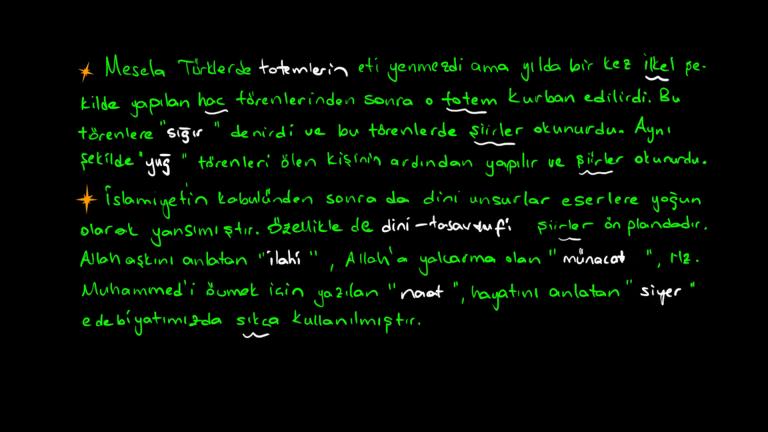 Mesela Türklerde totemlerin eti yenmezdi ama yılda bir kez ilkel şe-
kilde yapılan hac törenlerinden sonra o totem kurban edilirdi. Bu
törenlere "sığır" denirdi ve bu törenlerde şiirler okunurdu. Aynı
şekilde "yuğ" törenleri ölen kişinin ardından yapılır ve şiirler okunurdu.
İslamiyetin kabulünden sonra da dini unsurlar eserlere yoğun
olarak yansımıştır. Özellikle de dini-tasavvufi şiirler ön plandadır.
Allah aşkını anlatan "ilahi", Allah'a yalvarma olan "münacat", Hz.
Muhammed'i övmek için yazılan "naat", hayatını anlatan "siyer"
edebiyatımızda sıkça kullanılmıştır.